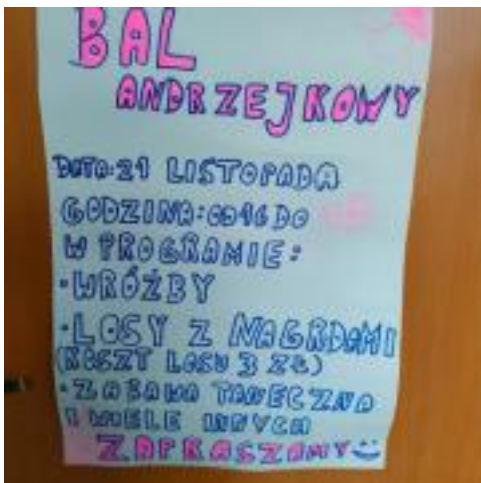 BAL
ANDRZEJKOWY
DATA: 21 LISTOPADA
GODZINA: OD 16 DO
W PROGRAMIE:
• WRÓŻBY
• LOSY Z NAGRDAMI
(KOSZT LOSU 3 ZŁ)
• ZABAWA TANECZNA
I WIELE INNYCH
ZAPRASZAMY